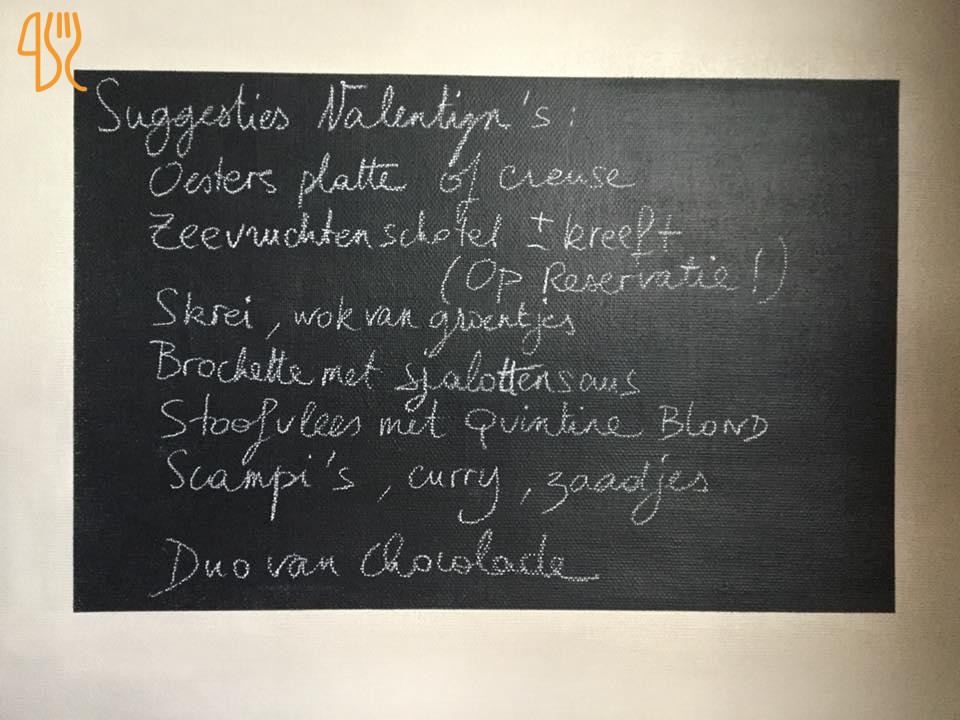 Suggesties Valentijn's :
Oesters platte of creuse
Zeevruchtenschotel ± kreeft
(Op Reservatie!)
Skrei, wok van groentjes
Brochette met sjalottensaus
Stoofvlees met Quintine BLOND
Scampi's, curry, zaadjes
Duo van Chocolade